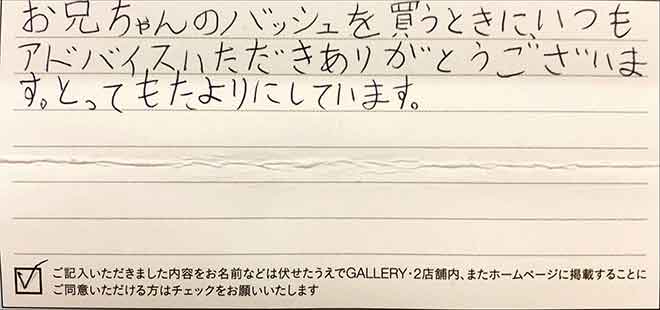 お兄ちゃんのバッシュを買うときに、いつも
アドバイスいただきありがとうございま
す。とってもたよりにしています。
ご記入いただきました内容をお名前などは伏せたうえでGALLERY・2店舗内、またホームページに掲載することに
ご同意いただける方はチェックをお願いいたします